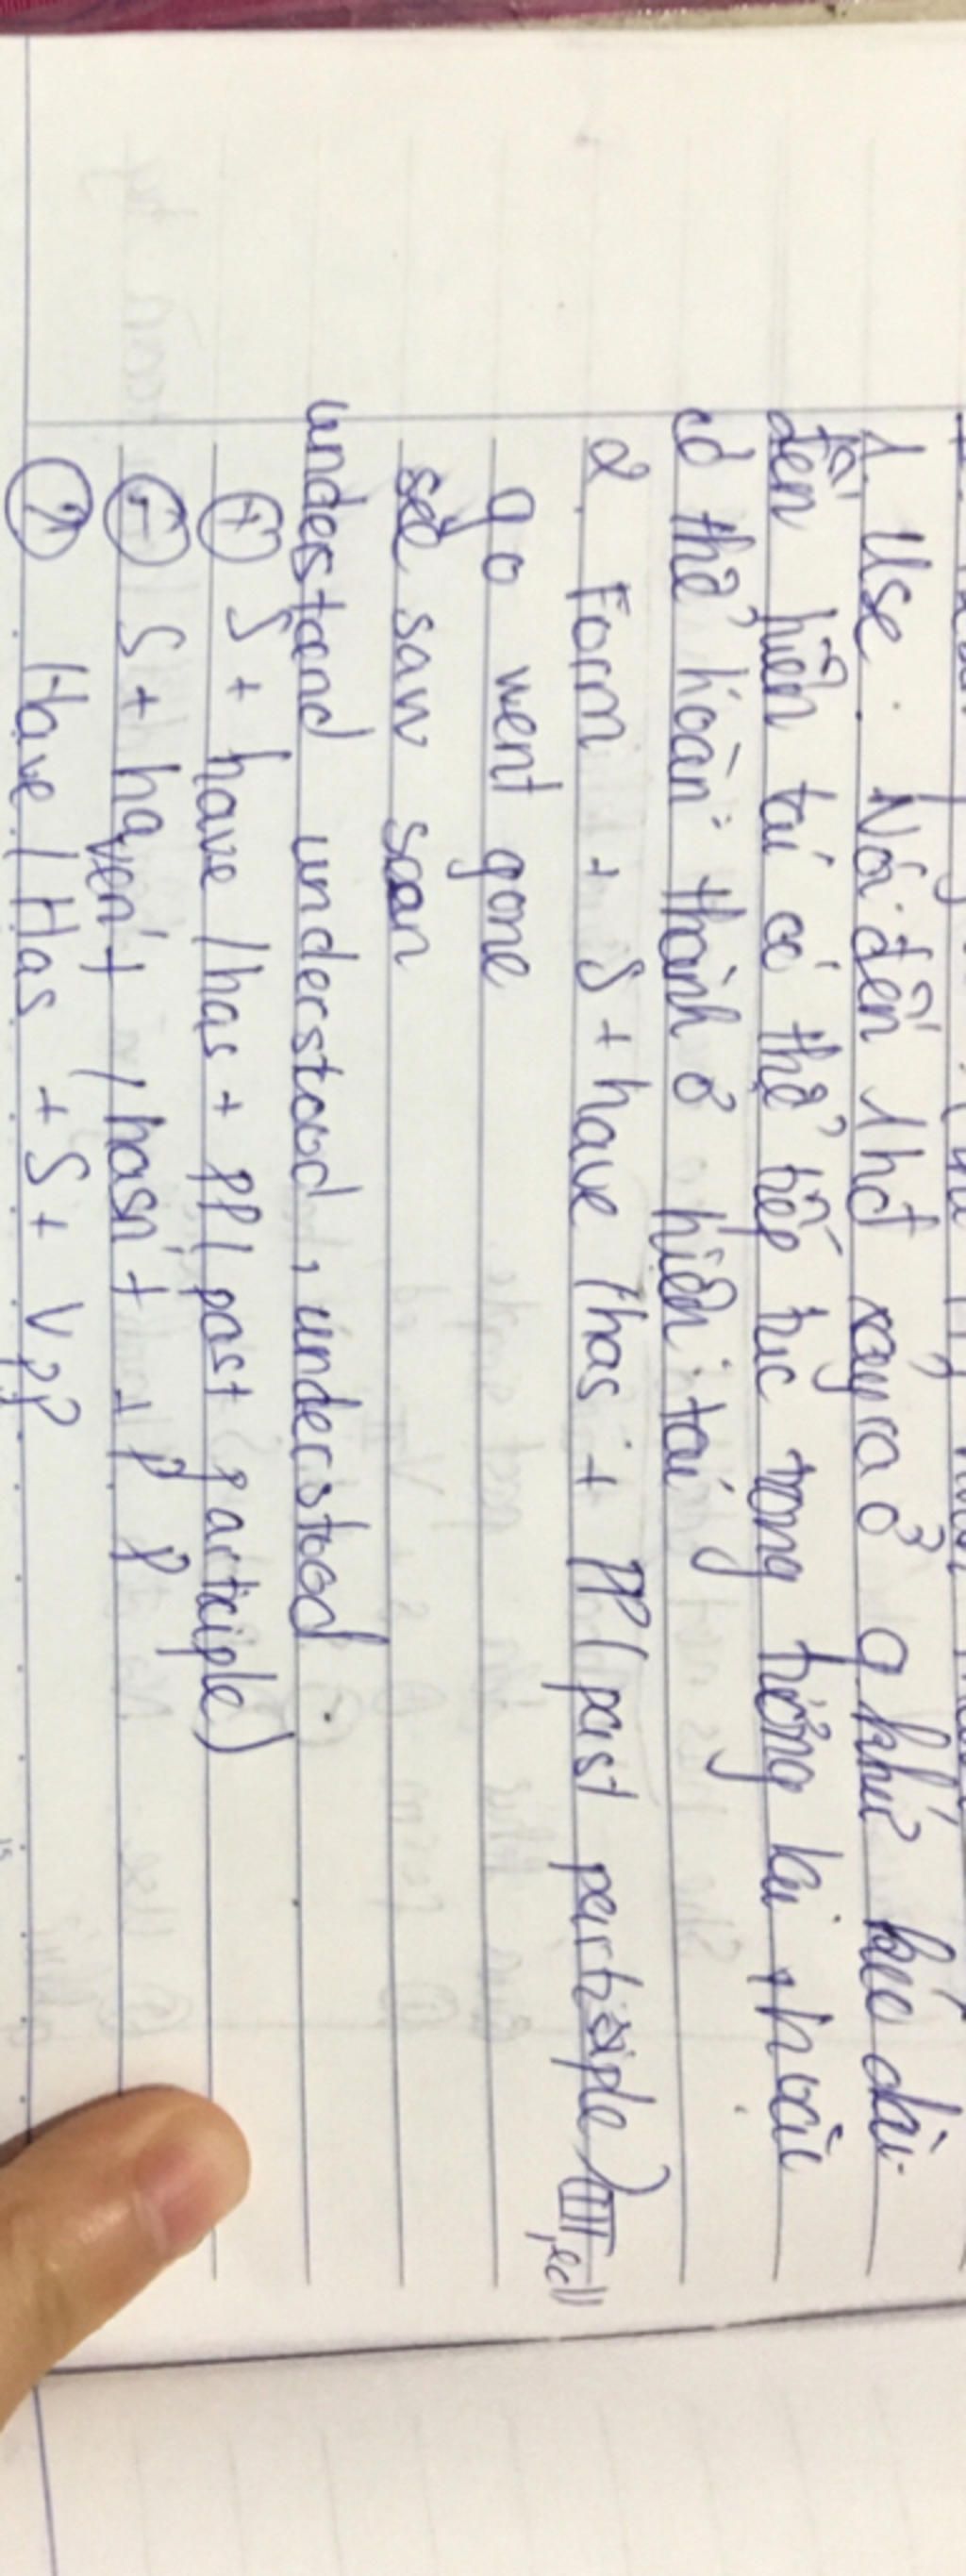 1. Use : Nói đến 1 hđ xảy ra ở q khứ kéo dài
đến hiện tại có thể tiếp tục trong tương lai, hoặc
có thể hoàn thành ở hiện tại
2. Form + S + have / has + PP (past participle) III, ed
go went gone
see saw seen
understand understood, understood
(+) S + have / has + PP (past participle)
(-) S + haven't / hasn't + PP
(?) Have / Has + S + Vpp